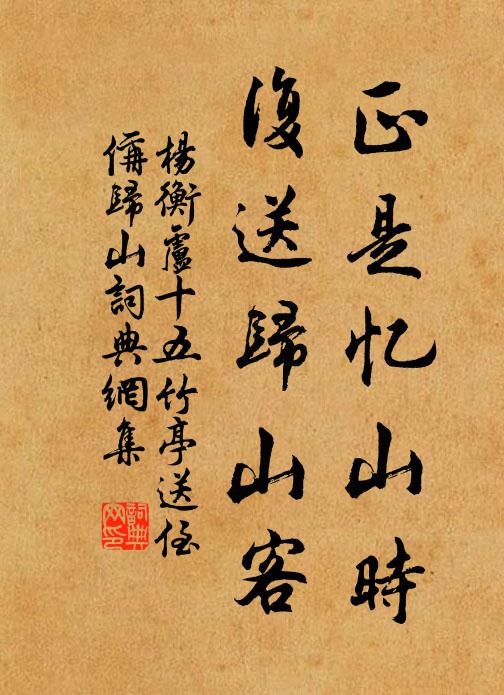 正是忆山時
復送歸山客
楊衡盧十五竹亭送侄
偁歸山詞典網集
詞典
网印